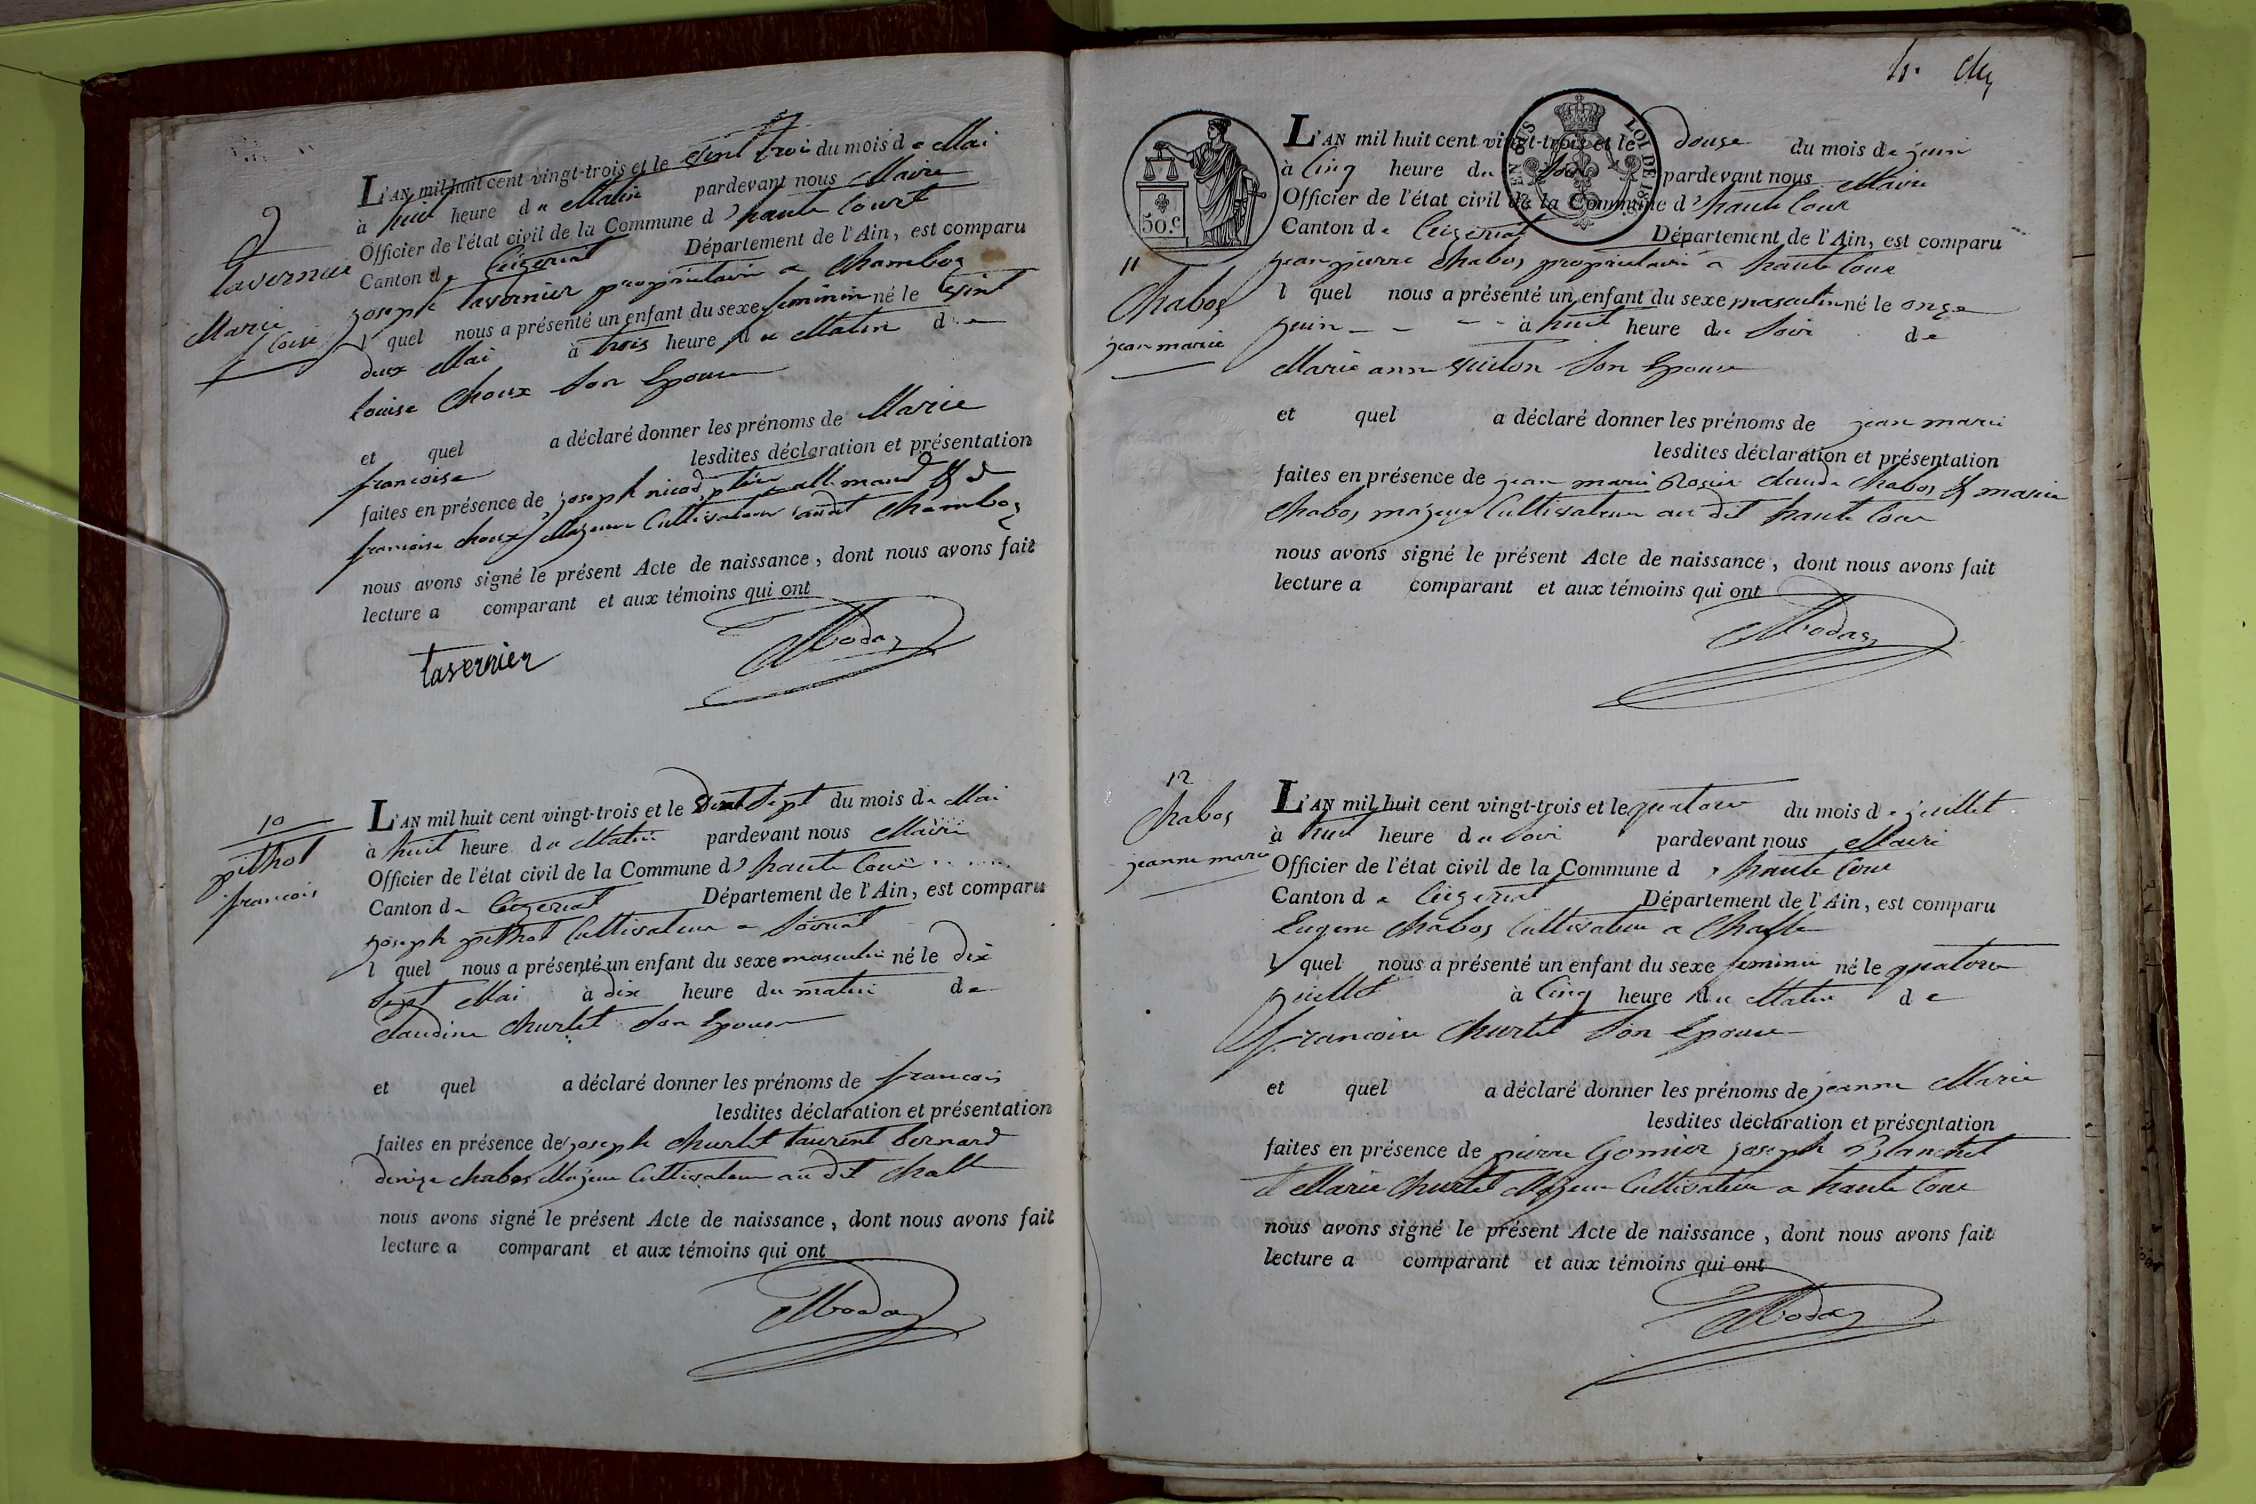 9
tavernier
Marie
L'AN mil huit cent vingt-trois et le vint trois du mois de Mai
à huit heure du Matin pardevant nous Maire
Officier de l'état civil de la Commune d'hautecourt
Canton de Ceizeriat Département de l'Ain, est comparu
joseph tavernier propriétaire a Chambos
l quel nous a présenté un enfant du sexe feminin né le vint
deux Mai à trois heure du Matin de
louise Choux Son Epouse
et quel a déclaré donner les prénoms de Marie
francoise lesdites déclaration et présentation
faites en présence de joseph nicod allemand
francoise choux Majeur Cultivateur audit Chambos
nous avons signé le présent Acte de naissance, dont nous avons fait
lecture a comparant et aux témoins qui ont
tavernier
10
pithot
francois
L'AN mil huit cent vingt-trois et le dix Sept du mois de Mai
à huit heure du Matin pardevant nous Maire
Officier de l'état civil de la Commune d'haute Cour
Canton de Ceizeriat Département de l'Ain, est comparu
joseph pithot Cultivateur a
l quel nous a présenté un enfant du sexe masculin né le dix
Sept Mai à dix heure du matin de
Claudine Churlet Son Epouse
et quel a déclaré donner les prénoms de francois
lesdites déclaration et présentation
faites en présence de joseph Churlet laurent bernard
denize chabos Majeur Cultivateur au dit Challe
nous avons signé le présent Acte de naissance, dont nous avons fait
lecture a comparant et aux témoins qui ont
50.c
EN SUS
LOI DE 18
11
Chabos
jean marie
L'AN mil huit cent vingt-trois et le douse du mois de juin
à Cinq heure du Soir pardevant nous Maire
Officier de l'état civil de la Commune d'haute Cour
Canton de Ceizeriat Département de l'Ain, est comparu
jean pierre Chabos propriétaire a haute Cour
l quel nous a présenté un enfant du sexe masculin né le onze
juin à huit heure du Soir de
Marie anne Son Epouse
et quel a déclaré donner les prénoms de jean marie
lesdites déclaration et présentation
faites en présence de jean marie Rosier claude Chabos & marie
Chabos majeur Cultivateur au dit haute Cour
nous avons signé le présent Acte de naissance, dont nous avons fait
lecture a comparant et aux témoins qui ont
12
Chabos
jeanne marie
L'AN mil huit cent vingt-trois et le quatorse du mois de juillet
à huit heure du Soir pardevant nous Maire
Officier de l'état civil de la Commune d'haute Cour
Canton de Ceizeriat Département de l'Ain, est comparu
Eugene Chabos Cultivateur a Challe
l quel nous a présenté un enfant du sexe feminin né le quatorse
juillet à Cinq heure du Matin de
francoise Churlet Son Epouse
et quel a déclaré donner les prénoms de jeanne Marie
lesdites déclaration et présentation
faites en présence de pierre Gomier joseph Blanchet
et Marie Churlet Majeur Cultivateur a haute Cour
nous avons signé le présent Acte de naissance, dont nous avons fait
lecture a comparant et aux témoins qui ont